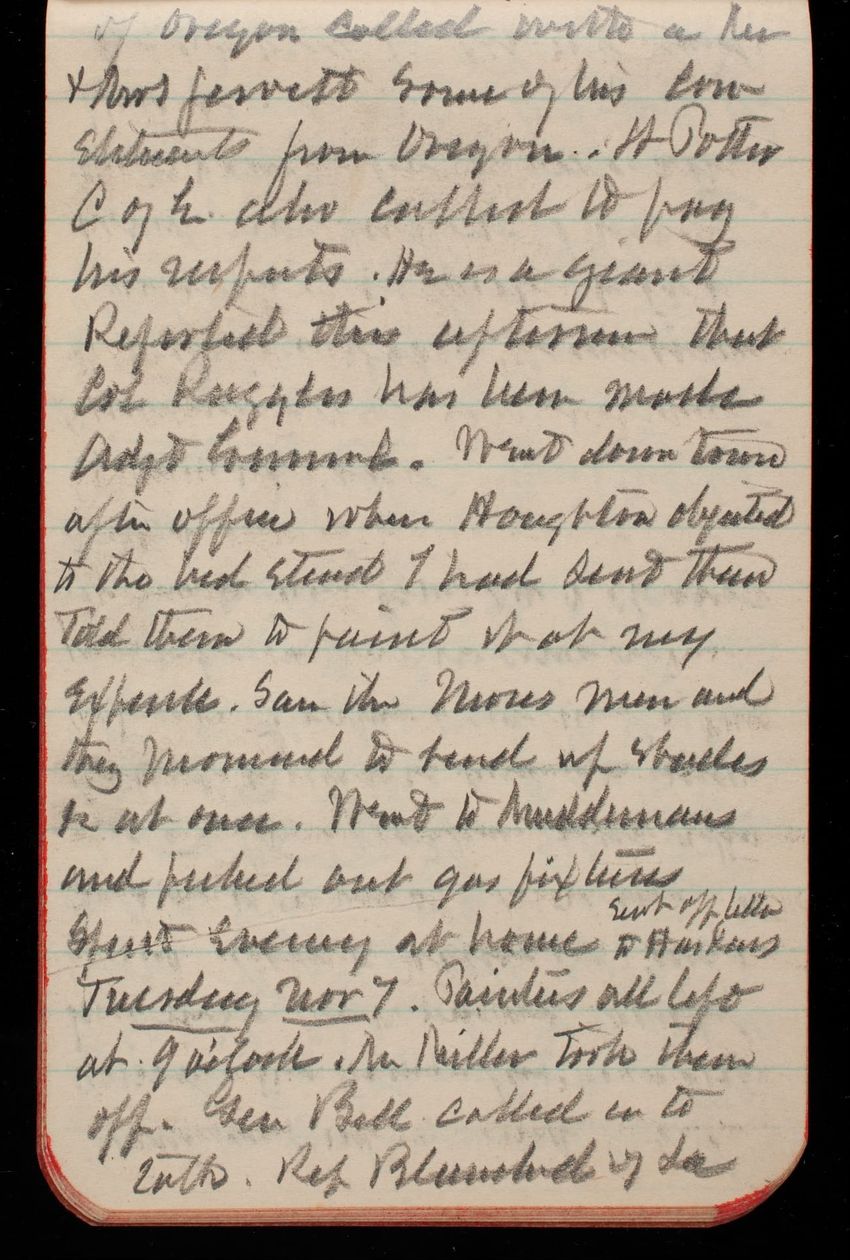 of Oregon called with a Mr
& Mrs Jewett Some of his Con
stituents from Oregon. H Potter
C of E. also called to pay
his respects. He is a giant
Reported this afternoon that
Col Ruggles has been made
Adjt General. Went down town
after office when Houghton objected
to the bed stead I had sent them
Told them to paint it at my
Expense. Saw the Moses men and
they promised to send up shades
at once. Went to Muddemans
and picked out gas fixtures
Spent Evening at home Sent off letter
to Harkins
Tuesday Nov 7. Painters all left
at 9 o'clock. Mr Miller took them
off. Gen Bell called in to
talk. Rep Blanchard of La